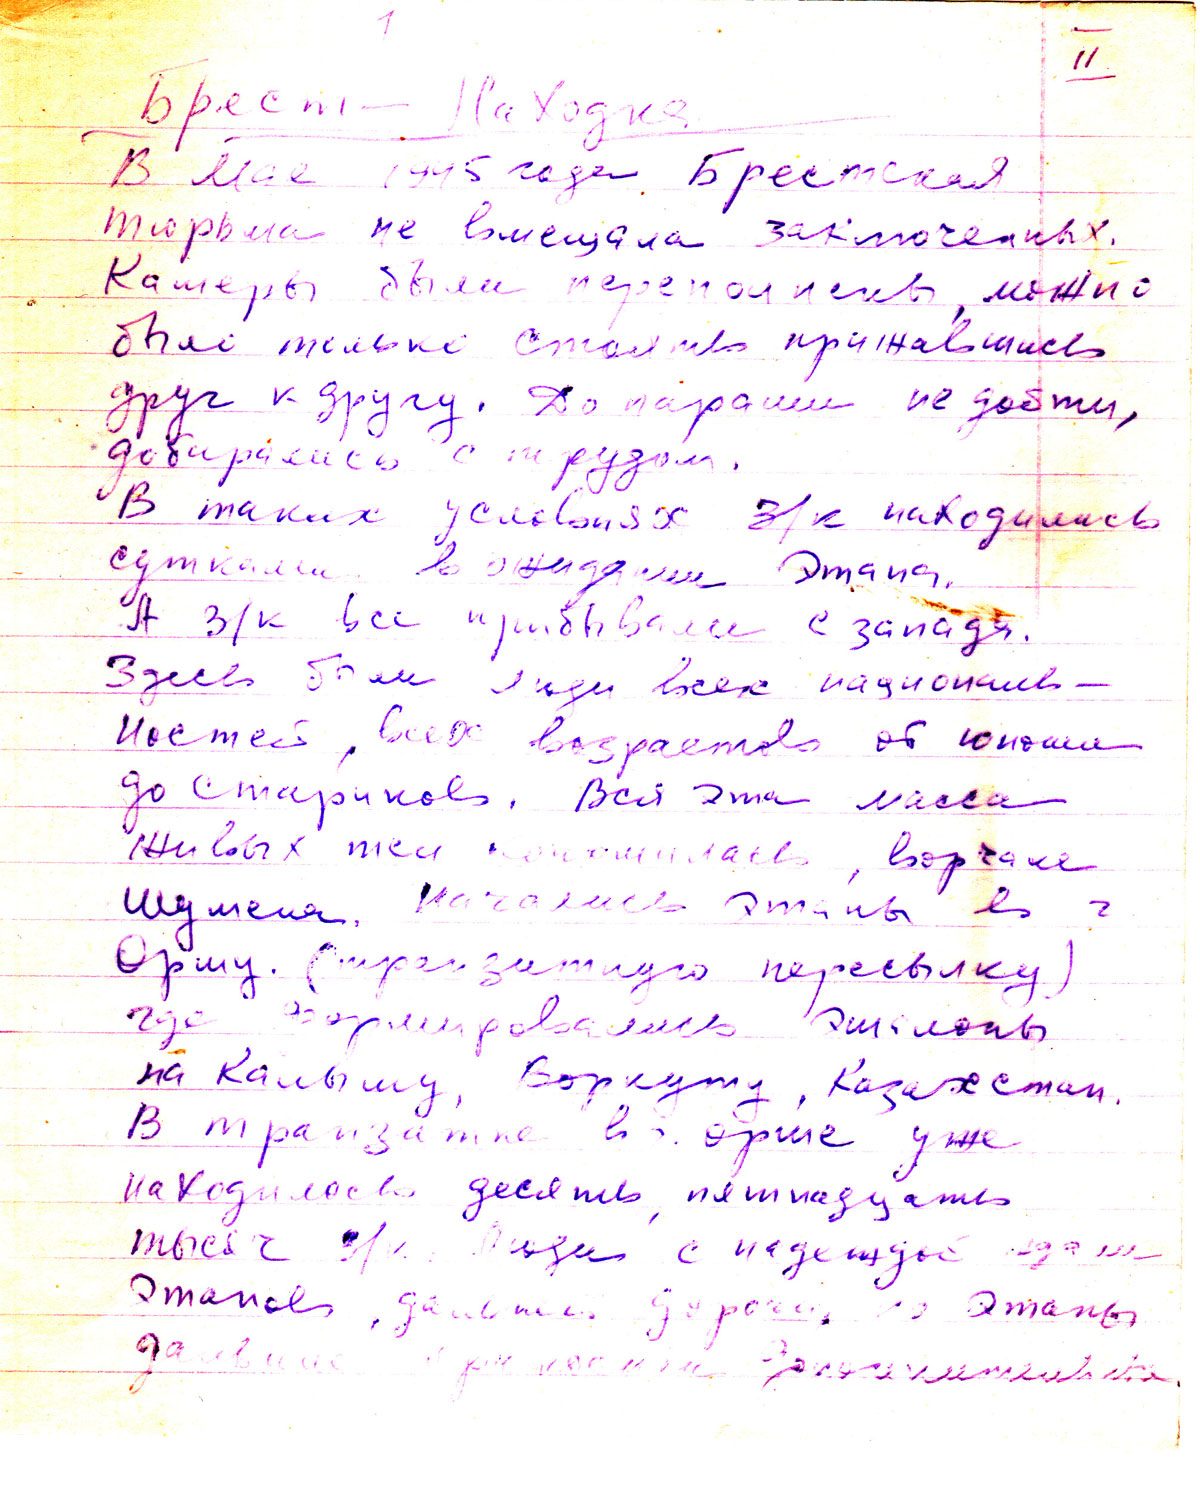 1
II
Брест — Находка
В Мае 1945 года Брестская
тюрьма не вмещала заключенных.
Камеры были переполнены, можно
было только стоять прижавшись
друг к другу. До параши не дойти,
добирались с трудом.
В таких условиях з/к находились
сутками в ожидании этапа.
А з/к все прибывали с запада.
Здесь были люди всех националь-
ностей, всех возрастов от юноши
до стариков. Вся эта масса
живых тел копошилась, ворчала
шумела. Начались этапы в г
Оршу. (транзитную пересылку)
где формировались эшелоны
на Калыму, Воркуту, Казахстан.
В транзатке в г. орше уже
находилось десять, пятнадцать
тысяч з/к. Люди с надеждой ждали
этапов, дальней дороги, но этапы
дальние